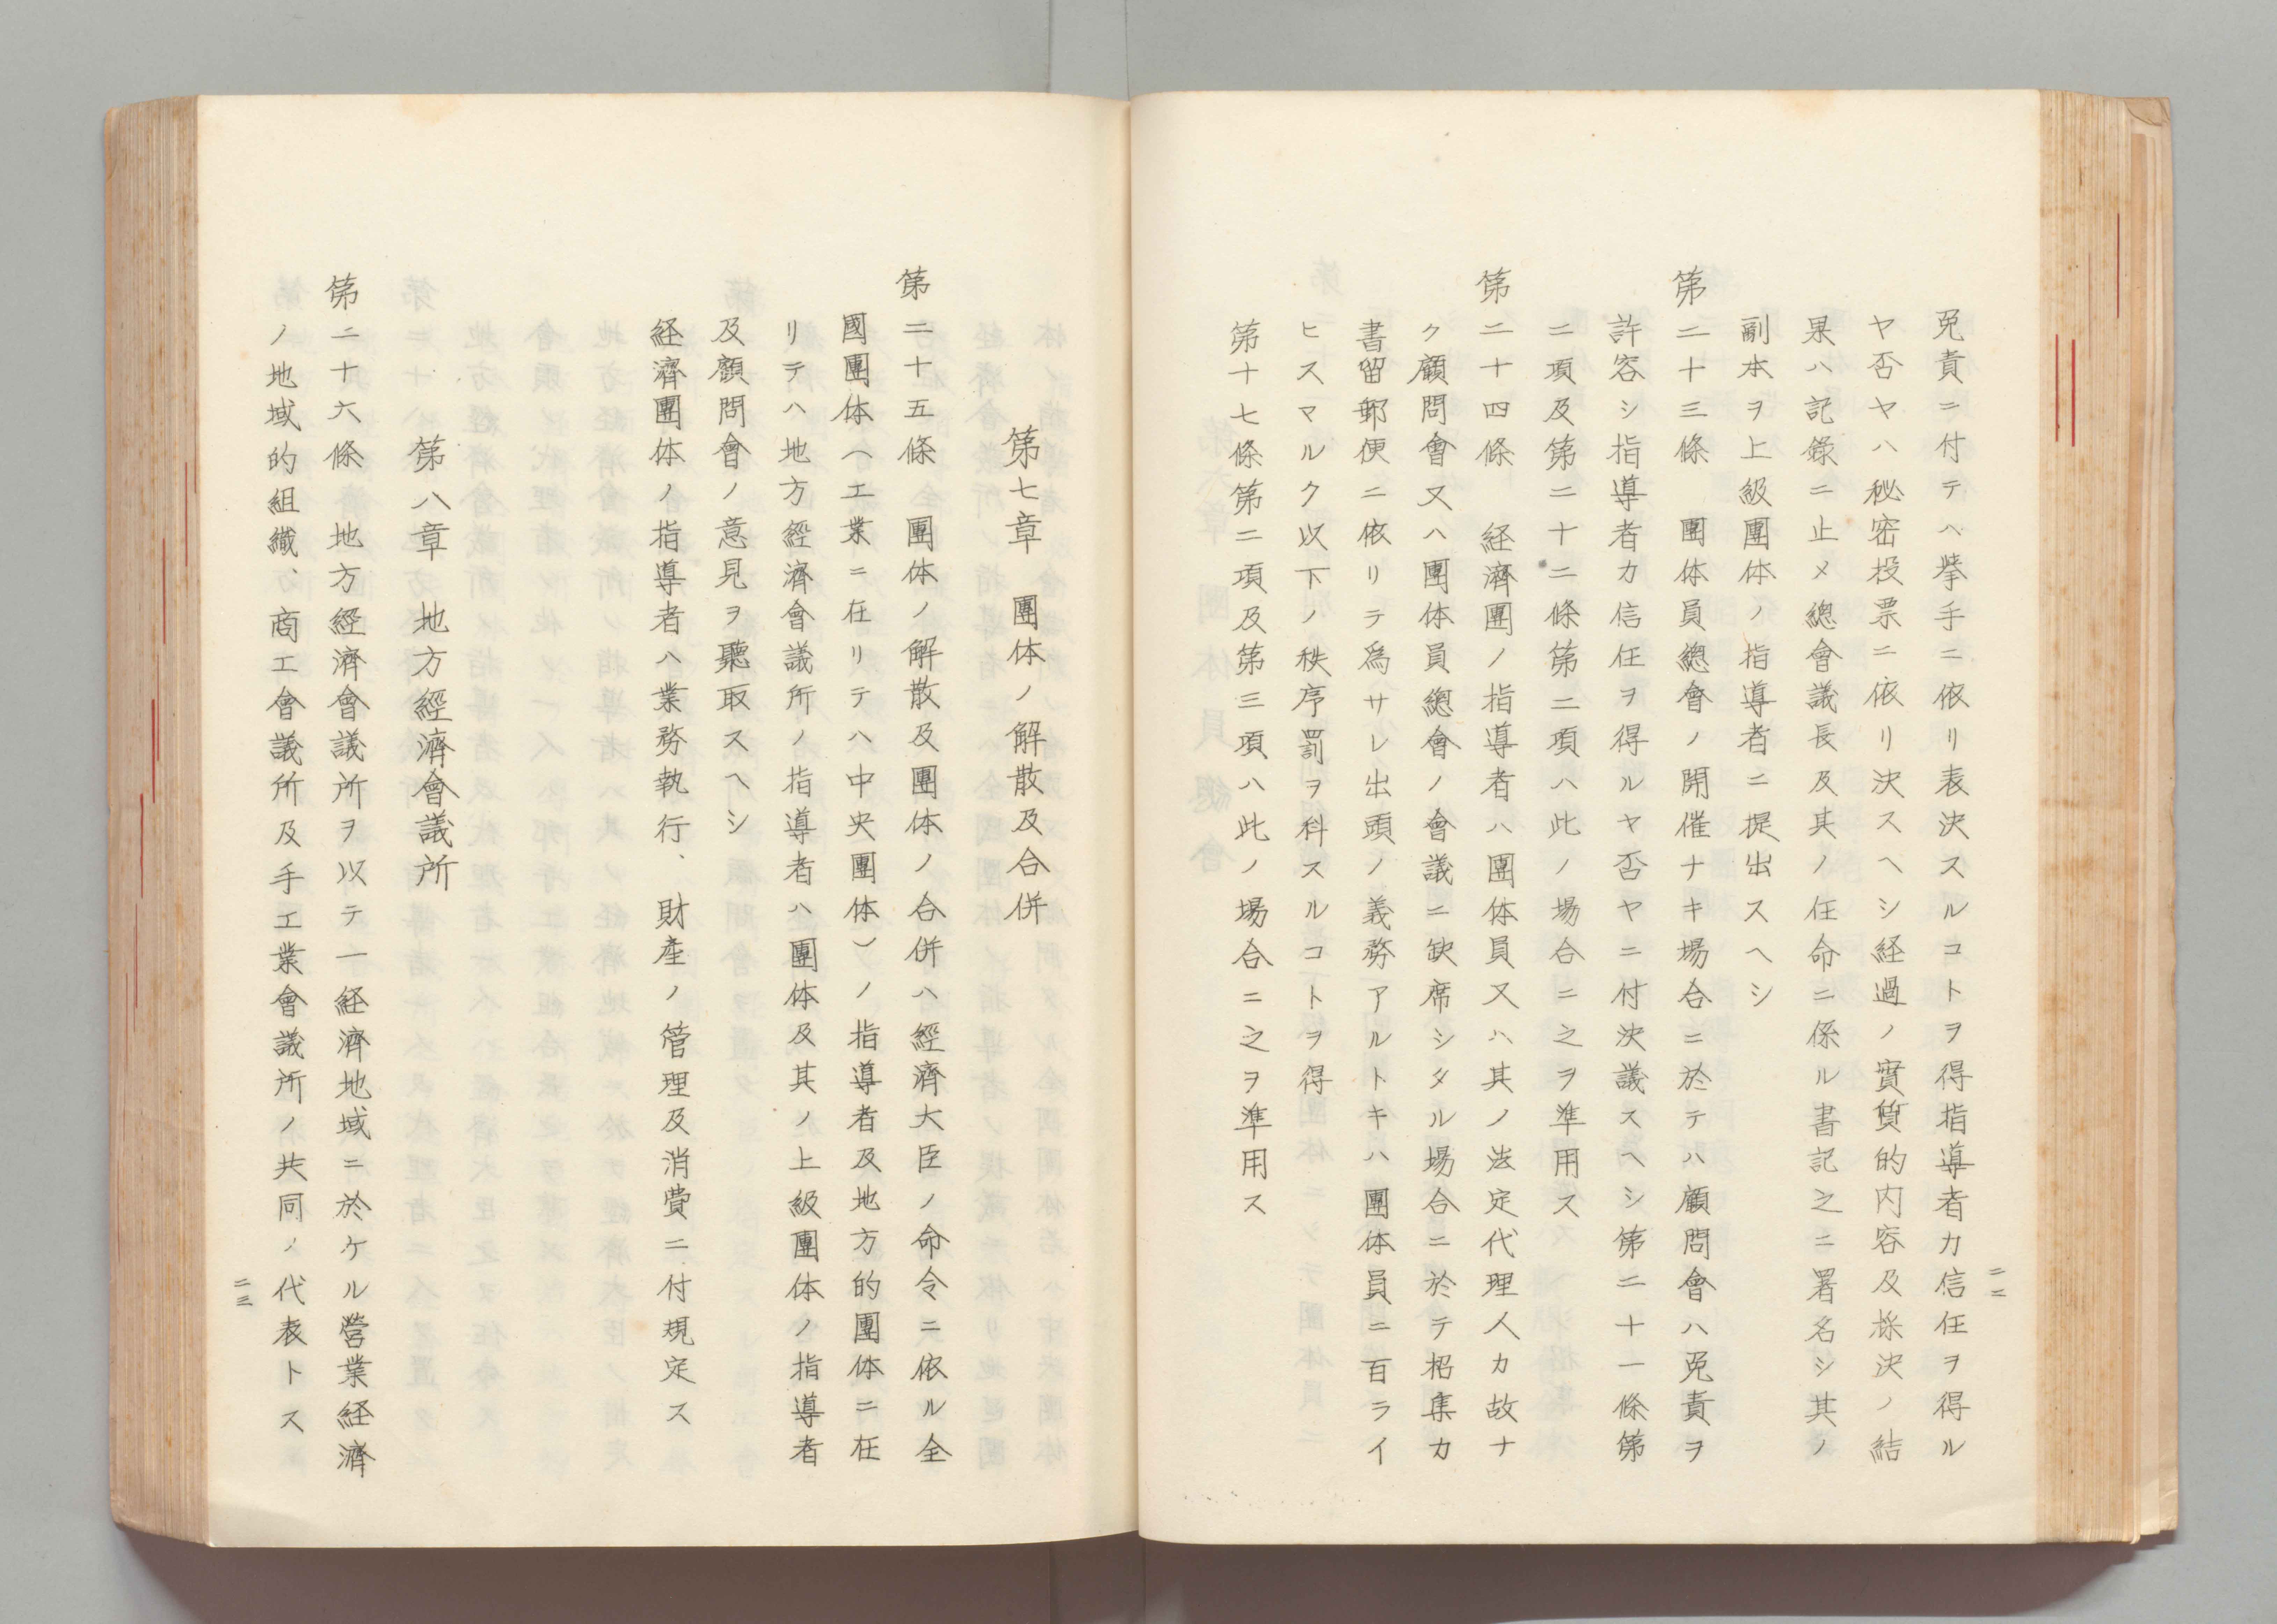 免責ニ付テハ挙手ニ依リ表決スルコトヲ得指導者カ信任ヲ得ル
ヤ否ヤハ秘密投票ニ依リ決スヘシ経過ノ實質的内容及採決ノ結
果ハ記錄ニ止メ總會議長及其ノ任命ニ係ル書記之ニ署名シ其ノ
副本ヲ上級團体ノ指導者ニ提出スヘシ
第二十三條 團体員總會ノ開催ナキ場合ニ於テハ顧問會ハ免責ヲ
許容シ指導者カ信任ヲ得ルヤ否ヤニ付決議スヘシ第二十一條第
二項及第二十二條第二項ハ此ノ場合ニ之ヲ準用ス
第二十四條 経濟團ノ指導者ハ團体員又ハ其ノ法定代理人カ故ナ
ク顧問會又ハ團体員總會ノ會議ニ缺席シタル場合ニ於テ招集カ
書留郵便ニ依リテ爲サレ出頭ノ義務アルトキハ團体員ニ百ライ
ヒスマルク以下ノ秩序罰ヲ科スルコトヲ得
第十七條第二項及第三項ハ此ノ場合ニ之ヲ準用ス
二二
第七章 團体ノ解散及合併
第二十五條 團体ノ解散及團体ノ合併ハ經濟大臣ノ命令ニ依ル全
國團体(工業ニ在リテハ中央團体)ノ指導者及地方的團体ニ在
リテハ地方經濟會議所ノ指導者ハ團体及其ノ上級團体ノ指導者
及顧問會ノ意見ヲ聽取スヘシ
経濟團体ノ指導者ハ業務執行、財産ノ管理及消費ニ付規定ス
第八章 地方經濟會議所
第二十六條 地方經濟會議所ヲ以テ一経濟地域ニ於ケル營業経濟
ノ地域的組織、商工會議所及手工業會議所ノ共同ノ代表トス
二三